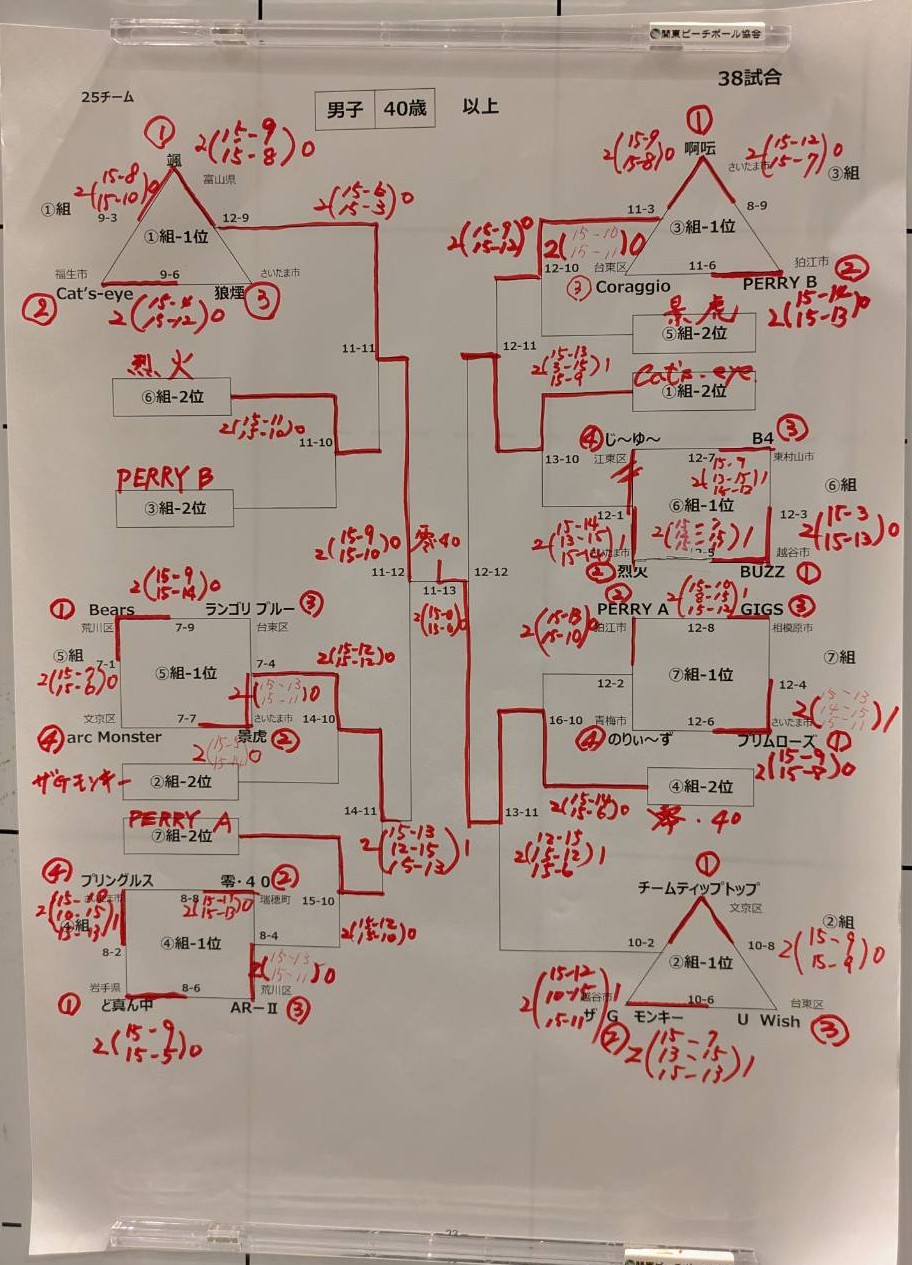 関東ビーチボール協会
38試合
25チーム
男子 40歳 以上
① 2(15-9 15-8)0
颯
富山県
2(15-8 15-10)0
①組
9-3
12-9
①組-1位
2(15-6 15-3)0
福生市
9-6
さいたま市
② Cat's-eye
狼煙 ③
11-11
烈火
⑥組-2位
2(15-11 15-10)0
11-10
PERRY B
③組-2位
①
啊呍
2(15-9 15-8)0
さいたま市
2(15-12 15-7)0
③組
11-3
8-9
③組-1位
2(15-9 15-12)0
2(15-10 15-11)0
12-10
台東区
11-6
狛江市
③ Coraggio
PERRY B ②
2(15-14 15-13)0
景虎
⑤組-2位
12-11
2(15-13 3-15 15-9)1
Cat's-eye
①組-2位
13-10
④ じ～ゆ～
B4 ③
江東区
12-7
東村山市
2(15-7 13-15 15-13)1
⑥組
⑥組-1位
12-1
12-3
2(15-3 15-13)0
さいたま市
越谷市
② 烈火
BUZZ ①
2(15-9 15-10)0
零・40
11-12
11-13
12-12
2(15-9 15-14)0
① Bears
ランゴリ ブルー ③
荒川区
7-9
台東区
⑤組
7-1
7-4
2(15-7 15-6)0
⑤組-1位
2(15-12 15-12)0
2(15-13 15-11)0
文京区
7-7
さいたま市
14-10
④ arc Monster
景虎 ②
ザGモンキー
②組-2位
PERRY A
⑦組-2位
14-11
2(15-13 12-15 15-13)1
② PERRY A
2(15-10 8-15 15-12)1
GIGS ③
2(15-13 15-10)0
狛江市
12-8
相模原市
⑦組
⑦組-1位
12-2
12-4
2(15-13 14-15 15-11)1
青梅市
12-6
さいたま市
16-10
④ のりぃ～ず
プリムローズ ①
2(15-9 15-8)0
④組-2位
2(15-14 15-6)0
零・40
13-11
2(12-15 15-12 15-6)1
④ プリングルス
零・４０ ②
さいたま市
8-8
瑞穂町
2(15-11 15-13)0
④組
④組-1位
15-10
8-2
8-4
2(15-12 15-10)0
2(15-13 15-11)0
岩手県
8-6
荒川区
① ど真ん中
AR－Ⅱ ③
2(15-9 15-5)0
①
チームティップトップ
文京区
②組
10-2
10-8
2(15-9 15-9)0
②組-1位
2(15-12 10-15 15-11)1
越谷市
10-6
台東区
ザ G モンキー ②
U Wish ③
2(15-7 13-15 15-13)1